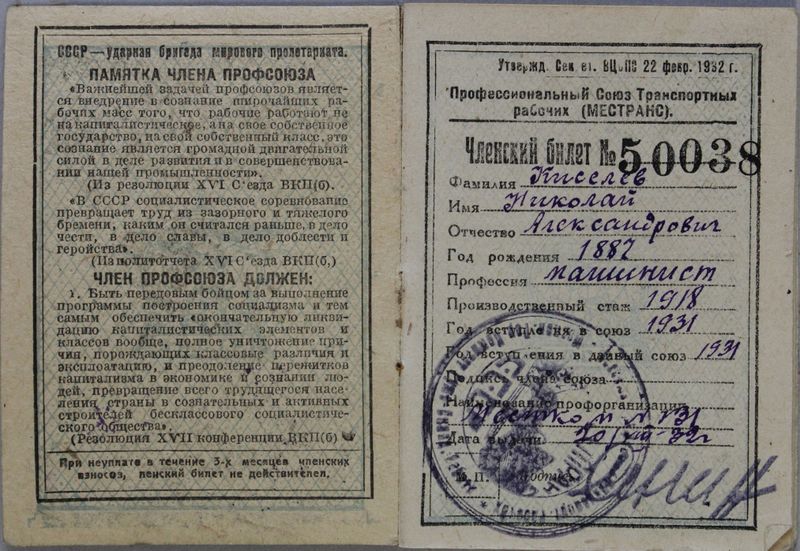 СССР — ударная бригада мирового пролетариата.
ПАМЯТКА ЧЛЕНА ПРОФСОЮЗА
«Важнейшей задачей профсоюзов являет-
ся внедрение в сознание широчайших ра-
бочих масс того, что рабочие работают не
на капиталистическое, а на свое собственное
государство, на свой собственный класс, это
сознание является громадной двигательной
силой в деле развития и в совершенствова-
нии нашей промышленности».
(Из резолюции XVI С'езда ВКП(б).
«В СССР социалистическое соревнование
превращает труд из зазорного и тяжелого
бремени, каким он считался раньше, в дело
чести, в дело славы, в дело доблести и
геройства».
(Из политотчета XVI С'езда ВКП(б.)
ЧЛЕН ПРОФСОЮЗА ДОЛЖЕН:
1. Быть передовым бойцом за выполнение
программы построения социализма и тем
самым обеспечить «окончательную ликви-
дацию капиталистических элементов и
классов вообще, полное уничтожение при-
чин, порождающих классовые различия и
эксплоатацию, и преодоление пережитков
капитализма в экономике и сознании лю-
дей, превращение всего трудящегося насе-
ления страны в сознательных и активных
строителей бесклассового социалистиче-
ского общества».
(Резолюция XVII конференции ВКП(б)
При неуплате в течение 3-х месяцев членских
взносов, ленский билет не действителен.
Утвержд. Сек ВЦСПС 22 февр. 1932 г.
Профессиональный Союз Транспортных
рабочих (МЕСТРАНС).
Членский билет № 50038
Фамилия Киселев
Имя Николай
Отчество Александрович
Год рождения 1887
Профессия машинист
Производственный стаж 1918
Год вступления в союз 1931
Год вступления в данный союз 1931
Подпись члена союза
Наименование профорганизации
Местком № 131
Дата выдачи 20/XII-32г
М. П. Подпись